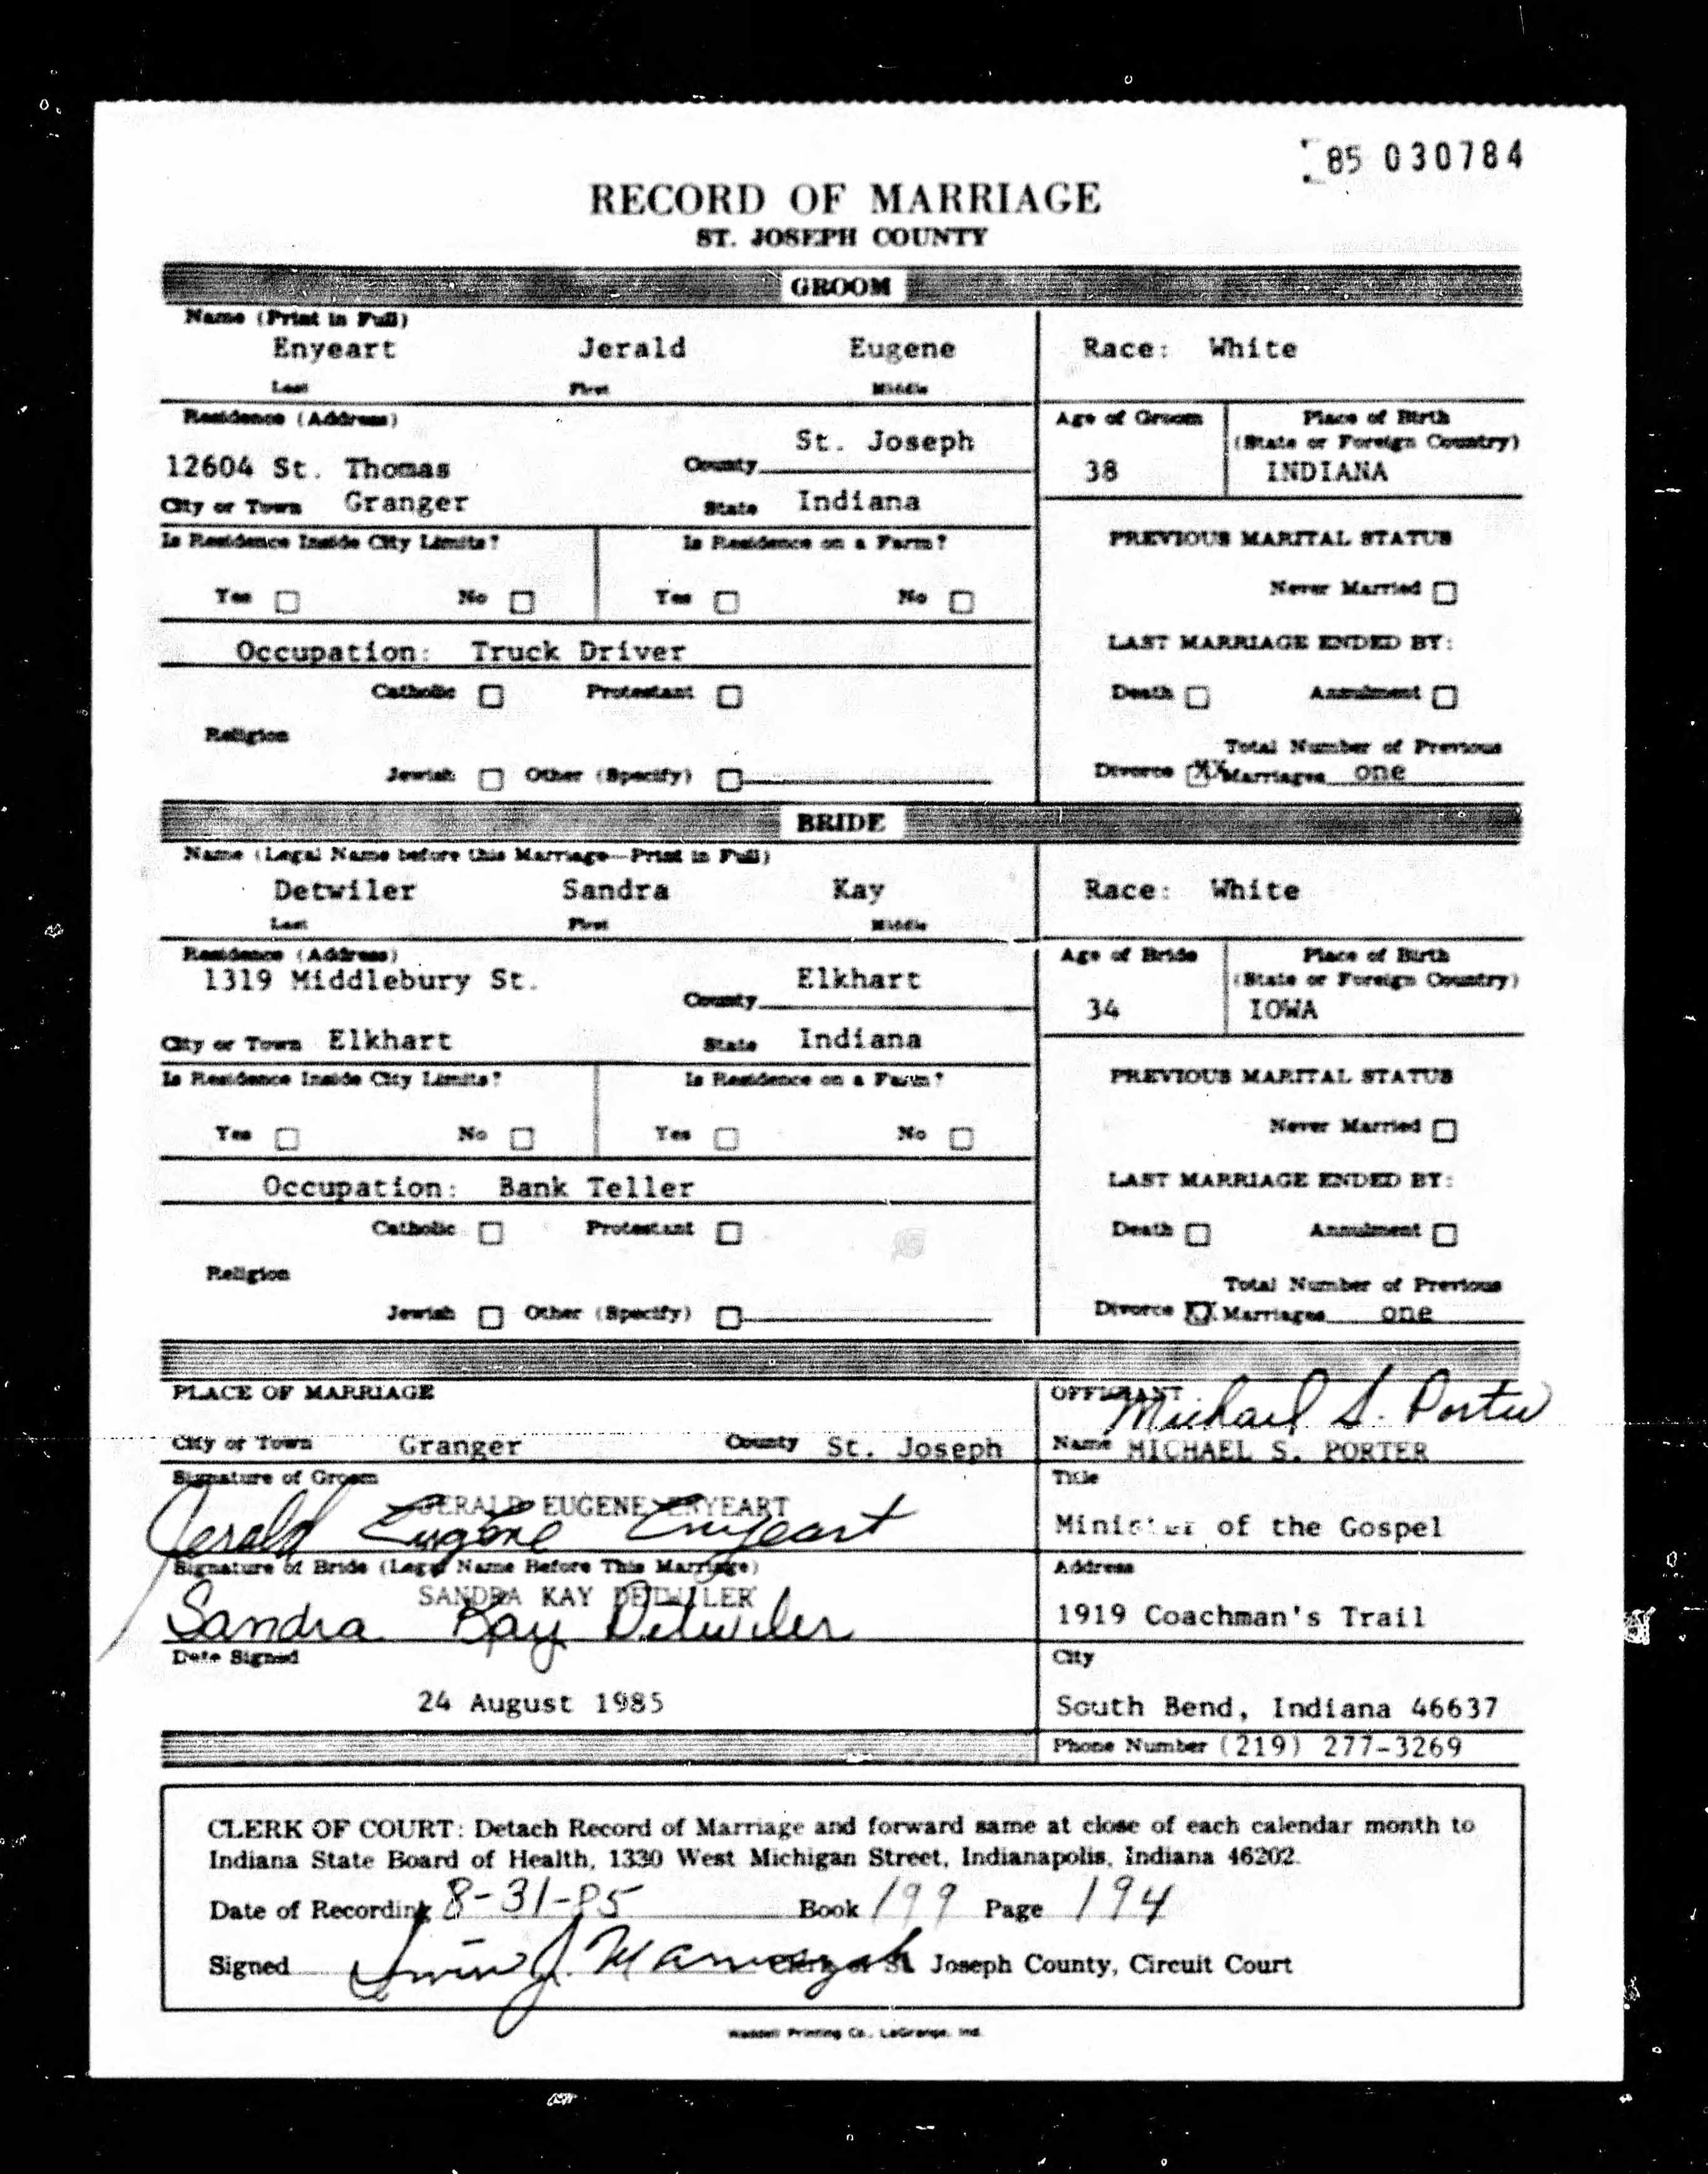 85 030784
RECORD OF MARRIAGE
ST. JOSEPH COUNTY
GROOM
Name (Print in Full)
Enyeart Jerald Eugene Race: White
Last First Middle
Residence (Address) Age of Groom Place of Birth
St. Joseph (State or Foreign Country)
12604 St. Thomas County 38 INDIANA
City or Town Granger State Indiana
Is Residence Inside City Limits? Is Residence on a Farm? PREVIOUS MARITAL STATUS
Yes No Yes No Never Married
Occupation: Truck Driver LAST MARRIAGE ENDED BY:
Catholic Protestant Death Annulment
Religion Total Number of Previous
Jewish Other (Specify) Divorce XX Marriages one
BRIDE
Name (Legal Name before this Marriage—Print in Full)
Detwiler Sandra Kay Race: White
Last First Middle
Residence (Address) Age of Bride Place of Birth
1319 Middlebury St. Elkhart (State or Foreign Country)
County 34 IOWA
City or Town Elkhart State Indiana
Is Residence Inside City Limits? Is Residence on a Farm? PREVIOUS MARITAL STATUS
Yes No Yes No Never Married
Occupation: Bank Teller LAST MARRIAGE ENDED BY:
Catholic Protestant Death Annulment
Religion Total Number of Previous
Jewish Other (Specify) Divorce XX Marriages one
PLACE OF MARRIAGE OFFICIANT Michael S. Porter
City or Town Granger County St. Joseph Name MICHAEL S. PORTER
Signature of Groom Title
JERALD EUGENE ENYEART
Jerald Eugene Enyeart Minister of the Gospel
Signature of Bride (Legal Name Before This Marriage) Address
SANDRA KAY DETWILER
Sandra Kay Detwiler 1919 Coachman's Trail
Date Signed City
24 August 1985 South Bend, Indiana 46637
Phone Number (219) 277-3269
CLERK OF COURT: Detach Record of Marriage and forward same at close of each calendar month to
Indiana State Board of Health, 1330 West Michigan Street, Indianapolis, Indiana 46202.
Date of Recording 8-31-85 Book 199 Page 194
Signed Clerk of St. Joseph County, Circuit Court
Waddell Printing Co., LaGrange, Ind.